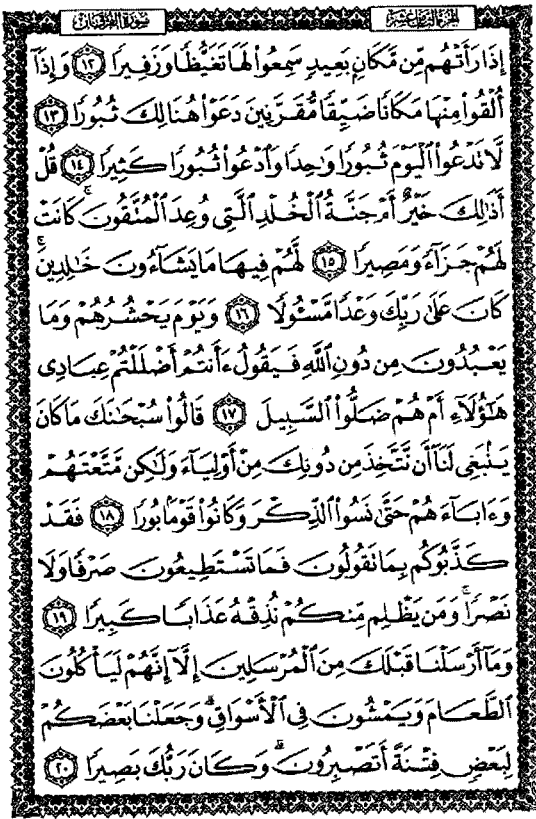 الجزء الثامن عشر
سورة الفرقان
إِذَا رَأَتْهُم مِّن مَّكَانٍ بَعِيدٍ سَمِعُوا۟ لَهَا تَغَيُّظًا وَزَفِيرًا ﴿١٢﴾ وَإِذَآ
أُلْقُوا۟ مِنْهَا مَكَانًا ضَيِّقًا مُّقَرَّنِينَ دَعَوْا۟ هُنَالِكَ ثُبُورًا ﴿١٣﴾
لَّا تَدْعُوا۟ ٱلْيَوْمَ ثُبُورًا وَٰحِدًا وَٱدْعُوا۟ ثُبُورًا كَثِيرًا ﴿١٤﴾ قُلْ
أَذَٰلِكَ خَيْرٌ أَمْ جَنَّةُ ٱلْخُلْدِ ٱلَّتِى وُعِدَ ٱلْمُتَّقُونَ ۚ كَانَتْ
لَهُمْ جَزَآءً وَمَصِيرًا ﴿١٥﴾ لَّهُمْ فِيهَا مَا يَشَآءُونَ خَٰلِدِينَ ۚ
كَانَ عَلَىٰ رَبِّكَ وَعْدًا مَّسْـُٔولًا ﴿١٦﴾ وَيَوْمَ يَحْشُرُهُمْ وَمَا
يَعْبُدُونَ مِن دُونِ ٱللَّهِ فَيَقُولُ ءَأَنتُمْ أَضْلَلْتُمْ عِبَادِى
هَٰٓؤُلَآءِ أَمْ هُمْ ضَلُّوا۟ ٱلسَّبِيلَ ﴿١٧﴾ قَالُوا۟ سُبْحَٰنَكَ مَا كَانَ
يَنۢبَغِى لَنَآ أَن نَّتَّخِذَ مِن دُونِكَ مِنْ أَوْلِيَآءَ وَلَٰكِن مَّتَّعْتَهُمْ
وَءَابَآءَهُمْ حَتَّىٰ نَسُوا۟ ٱلذِّكْرَ وَكَانُوا۟ قَوْمًۢا بُورًا ﴿١٨﴾ فَقَدْ
كَذَّبُوكُم بِمَا تَقُولُونَ فَمَا تَسْتَطِيعُونَ صَرْفًا وَلَا
نَصْرًا ۚ وَمَن يَظْلِم مِّنكُمْ نُذِقْهُ عَذَابًا كَبِيرًا ﴿١٩﴾
وَمَآ أَرْسَلْنَا قَبْلَكَ مِنَ ٱلْمُرْسَلِينَ إِلَّآ إِنَّهُمْ لَيَأْكُلُونَ
ٱلطَّعَامَ وَيَمْشُونَ فِى ٱلْأَسْوَاقِ ۗ وَجَعَلْنَا بَعْضَكُمْ
لِبَعْضٍ فِتْنَةً أَتَصْبِرُونَ ۗ وَكَانَ رَبُّكَ بَصِيرًا ﴿٢٠﴾